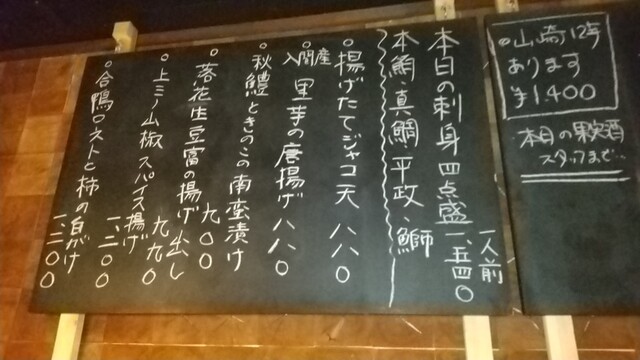 本日の刺身 四点盛 一人前 一、五四〇
本鮪、真鯛、平政、鰤
○揚げたてジャコ天 八八〇
○入間産 里芋の唐揚げ 八八〇
○秋鱧ときのこの南蛮漬け
○落花生豆富の揚げ出し 九〇〇
○上ミノ山椒スパイス揚げ 九九〇
○合鴨ローストと柿の白がけ 一、二〇〇
一、二〇〇
○山崎12年
あります
¥1,400
本日の果実酒
スタッフまで…